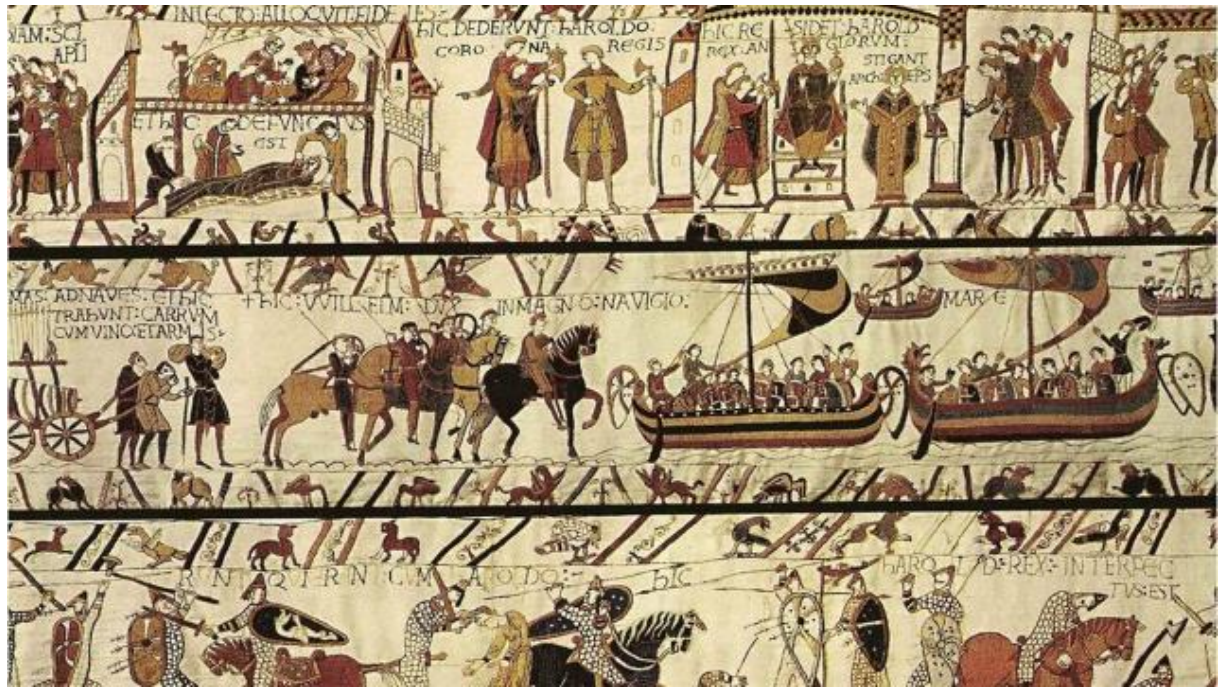 IN LECTO: ALLOQVIT: FIDELES:
IAM: SCI
APLI
ET hIC DEFVNCTVS
EST
hIC DEDERVNT: hAROLDO:
CORONA REGIS
hIC RE SIDET: hAROLD
REX: AN GLORVM:
STIGANT
ARChI EPS
NAS: AD NAVES: ET hIC
TRAhVNT: CARRVM
CVM VINO: ET ARMIS:
+ hIC: VVILLELM: DVX IN MAGNO: NAVIGIO:
MARE
RVNT QVI ERANT CVM hAROLDO:
hIC hAROLD: REX: INTERFEC
TVS: EST